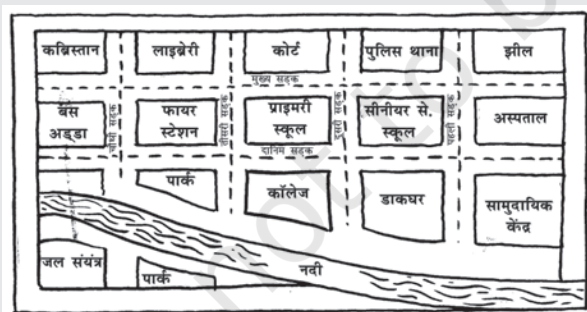 कब्रिस्तान लाइब्रेरी कोर्ट पुलिस थाना झील
मुख्य सड़क
बस
अड्डा
चौथी सड़क
फायर
स्टेशन
तीसरी सड़क
प्राइमरी
स्कूल
दूसरी सड़क
सीनीयर से.
स्कूल
पहली सड़क
अस्पताल
दानिम सड़क
पार्क
कॉलेज
डाकघर
सामुदायिक
केंद्र
जल संयंत्र
पार्क
नदी
not to b